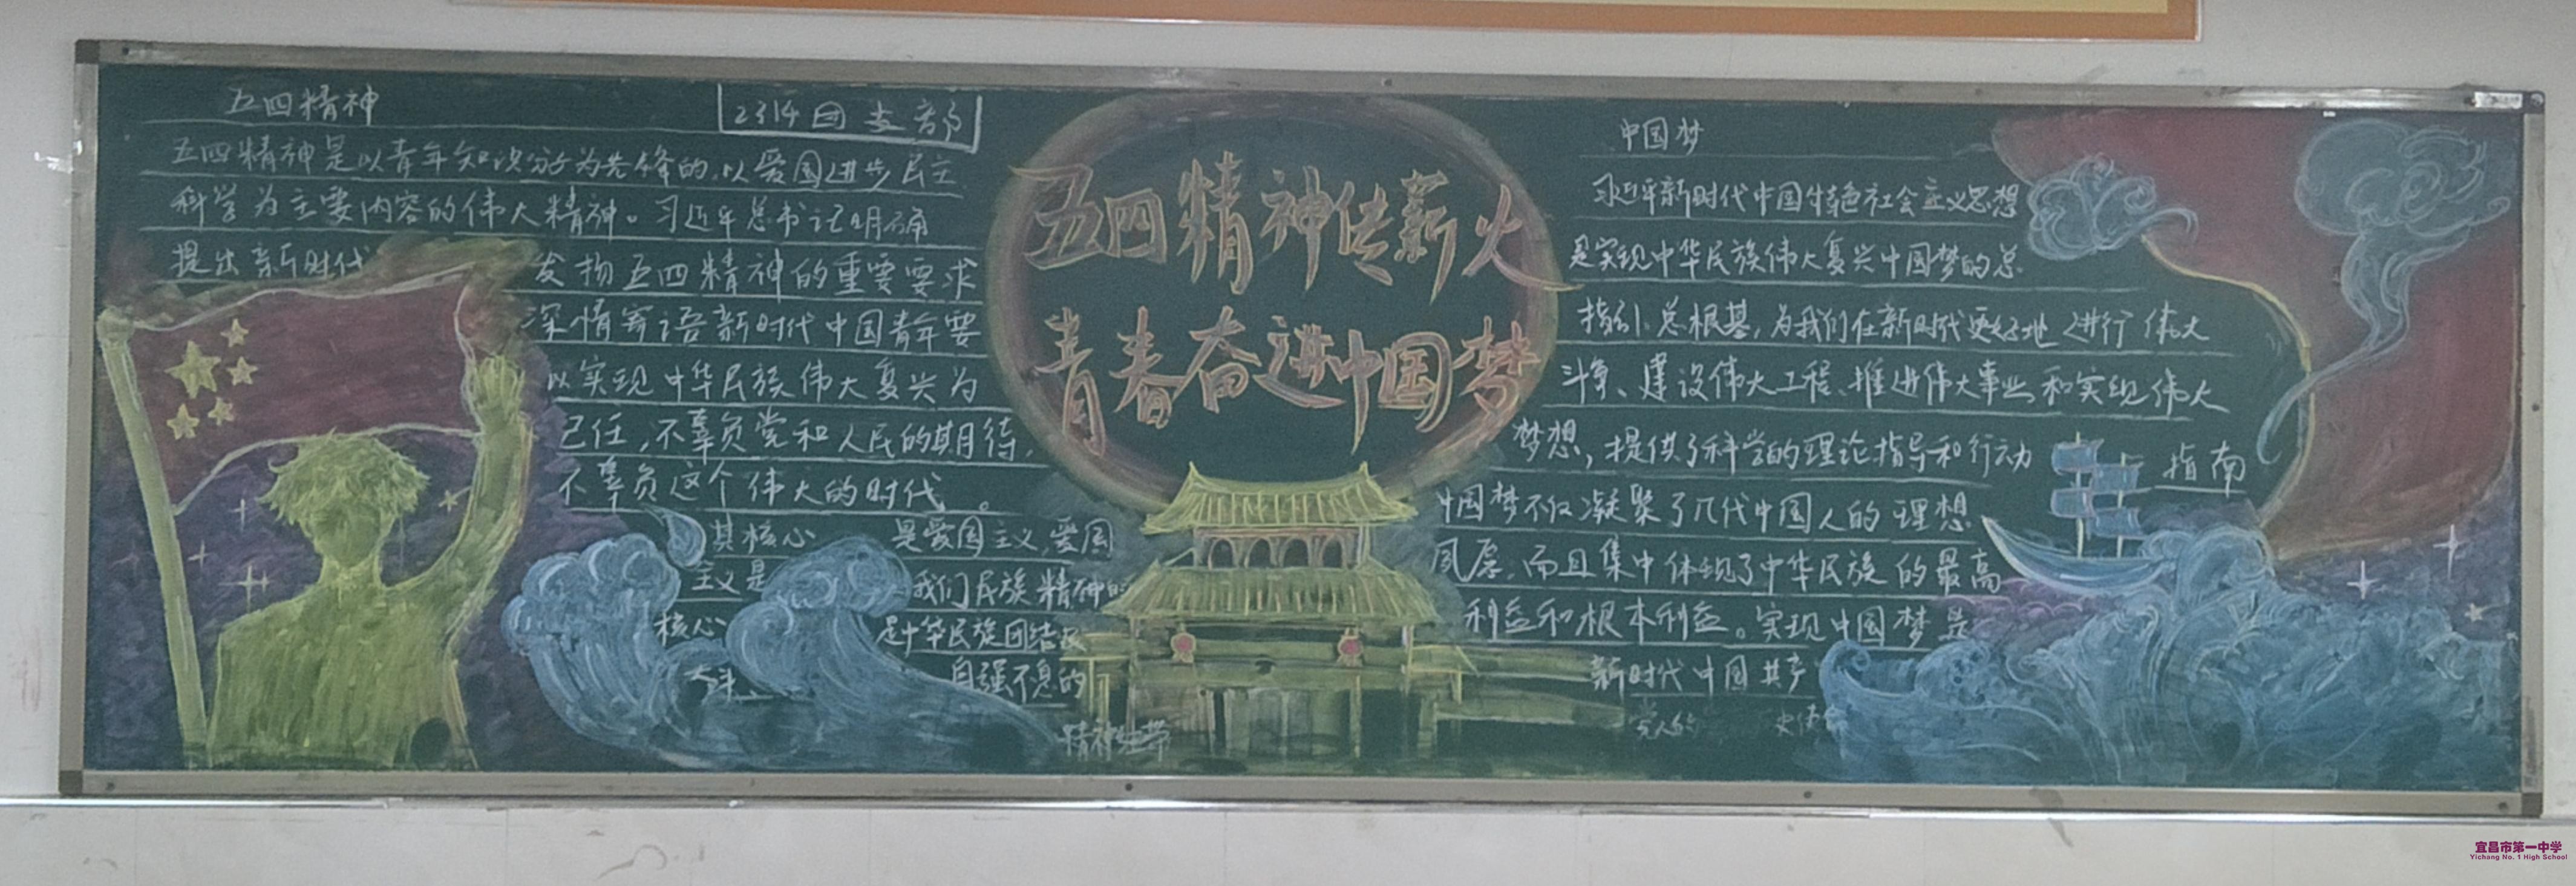 五四精神
2314团支部
五四精神是以青年知识分子为先锋的,以爱国进步民主
科学为主要内容的伟大精神。习近平总书记明确
提出新时代
发扬五四精神的重要要求
深情寄语新时代中国青年要
以实现中华民族伟大复兴为
己任,不辜负党和人民的期待,
不辜负这个伟大的时代。
其核心 是爱国主义,爱国
主义是 我们民族精神的
核心 是中华民族团结
自强不息的
精神纽带
五四精神传薪火
青春奋进中国梦
中国梦
习近平新时代中国特色社会主义思想
是实现中华民族伟大复兴中国梦的总
指引、总根基,为我们在新时代更好地进行伟大
斗争、建设伟大工程、推进伟大事业和实现伟大
梦想,提供了科学的理论指导和行动 指南
中国梦不仅凝聚了几代中国人的理想
夙愿,而且集中体现了中华民族的最高
利益和根本利益。实现中国梦是
新时代中国共产
党人的 史使
宜昌市第一中学
Yichang No. 1 High School